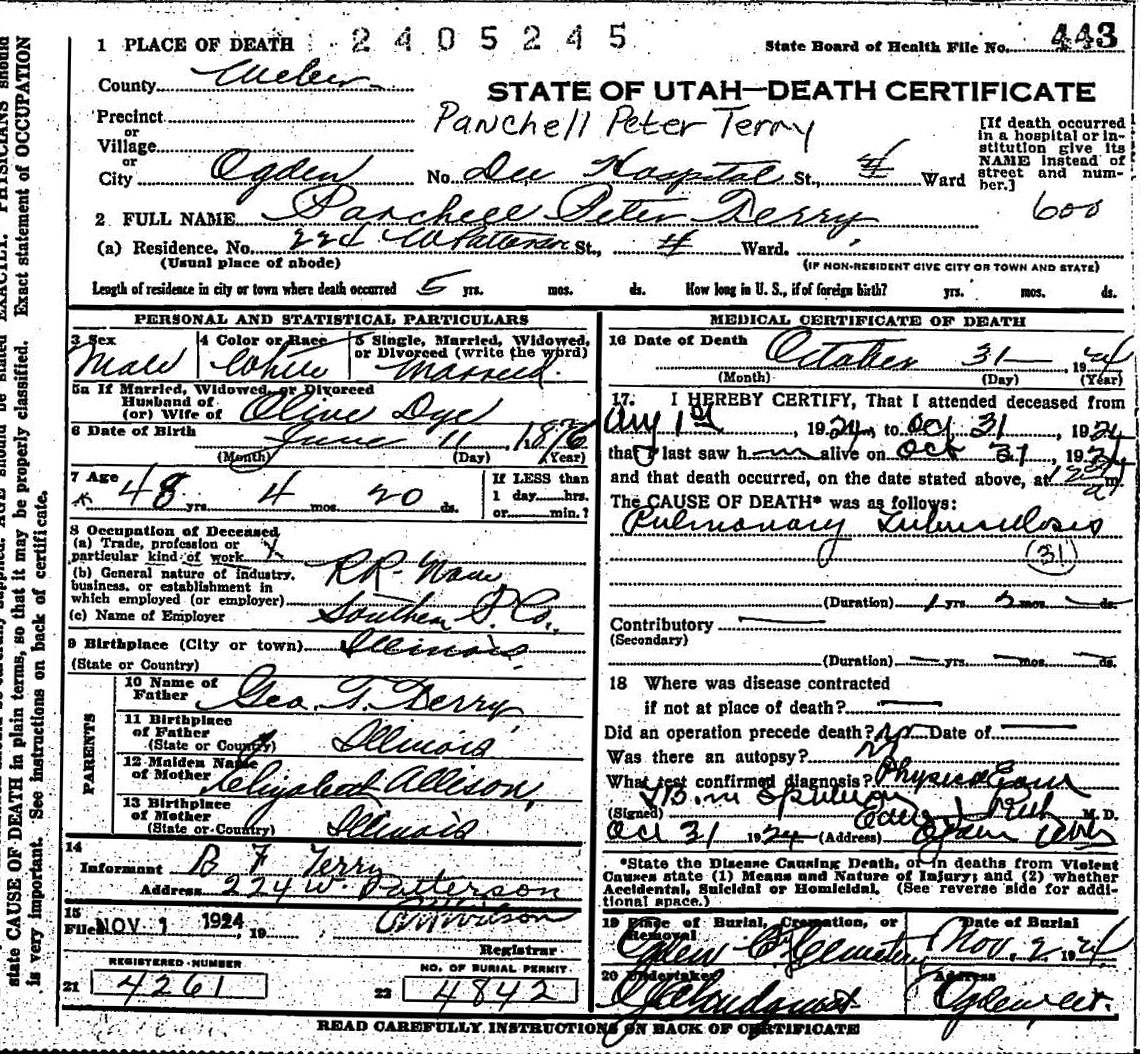 1 PLACE OF DEATH 2405245 State Board of Health File No. 443
County Weber
STATE OF UTAH—DEATH CERTIFICATE
Precinct Panchell Peter Terry
or
Village
or
City Ogden No. Dee Hospital St., 4 Ward
[If death occurred
in a hospital or in-
stitution give its
NAME instead of
street and num-
ber.]
600
2 FULL NAME Panchell Peter Terry
(a) Residence, No. 224 W Patterson St., 4 Ward.
(Usual place of abode) (IF NON-RESIDENT GIVE CITY OR TOWN AND STATE)
Length of residence in city or town where death occurred 5 yrs. mos. ds. How long in U. S., if of foreign birth? yrs. mos. ds.
PERSONAL AND STATISTICAL PARTICULARS
3 Sex 4 Color or Race 5 Single, Married, Widowed,
or Divorced (write the word)
Male White Married
5a If Married, Widowed, or Divorced
Husband of
(or) Wife of Olive Dye
6 Date of Birth June 11 1876
(Month) (Day) (Year)
7 Age If LESS than
48 yrs. 4 mos. 20 ds. 1 day hrs.
or min.?
8 Occupation of Deceased
(a) Trade, profession or
particular kind of work
(b) General nature of industry,
business, or establishment in
which employed (or employer) RR-
(c) Name of Employer Southern P. Co.,
9 Birthplace (City or town) Illinois
(State or Country)
PARENTS
10 Name of
Father Geo. T. Terry
11 Birthplace
of Father
(State or Country) Illinois
12 Maiden Name
of Mother Elizabeth Allison,
13 Birthplace
of Mother
(State or Country) Illinois
14
Informant B F Terry
Address 224 W. Patterson
15
Filed NOV 1 1924, 19 Wilson
Registrar
REGISTERED NUMBER NO. OF BURIAL PERMIT
21 4261 22 4842
MEDICAL CERTIFICATE OF DEATH
16 Date of Death October 31 1924
(Month) (Day) (Year)
17. I HEREBY CERTIFY, That I attended deceased from
Aug 1st, 1924, to Oct 31, 1924
that I last saw him alive on Oct 31, 1924
and that death occurred, on the date stated above, at m.
The CAUSE OF DEATH* was as follows:
Pulmonary Tuberculosis
(31)
(Duration) 1 yrs. mos. ds.
Contributory
(Secondary)
(Duration) yrs. mos. ds.
18 Where was disease contracted
if not at place of death?
Did an operation precede death? no Date of
Was there an autopsy? no
What test confirmed diagnosis? Physical Exam
TB in Sputum
(Signed) M. D.
Oct 31 1924 (Address) Ogden Utah
*State the Disease Causing Death, or in deaths from Violent
Causes state (1) Means and Nature of Injury; and (2) whether
Accidental, Suicidal or Homicidal. (See reverse side for addi-
tional space.)
19 Place of Burial, Cremation, or
Removal Date of Burial
Ogden City Cemetery Nov. 2 1924
20 Undertaker Address
Ogden, Ut.
READ CAREFULLY INSTRUCTIONS ON BACK OF CERTIFICATE
state CAUSE OF DEATH in plain terms, so that it may be properly classified. Exact statement of OCCUPATION
is very important. See instructions on back of certificate.